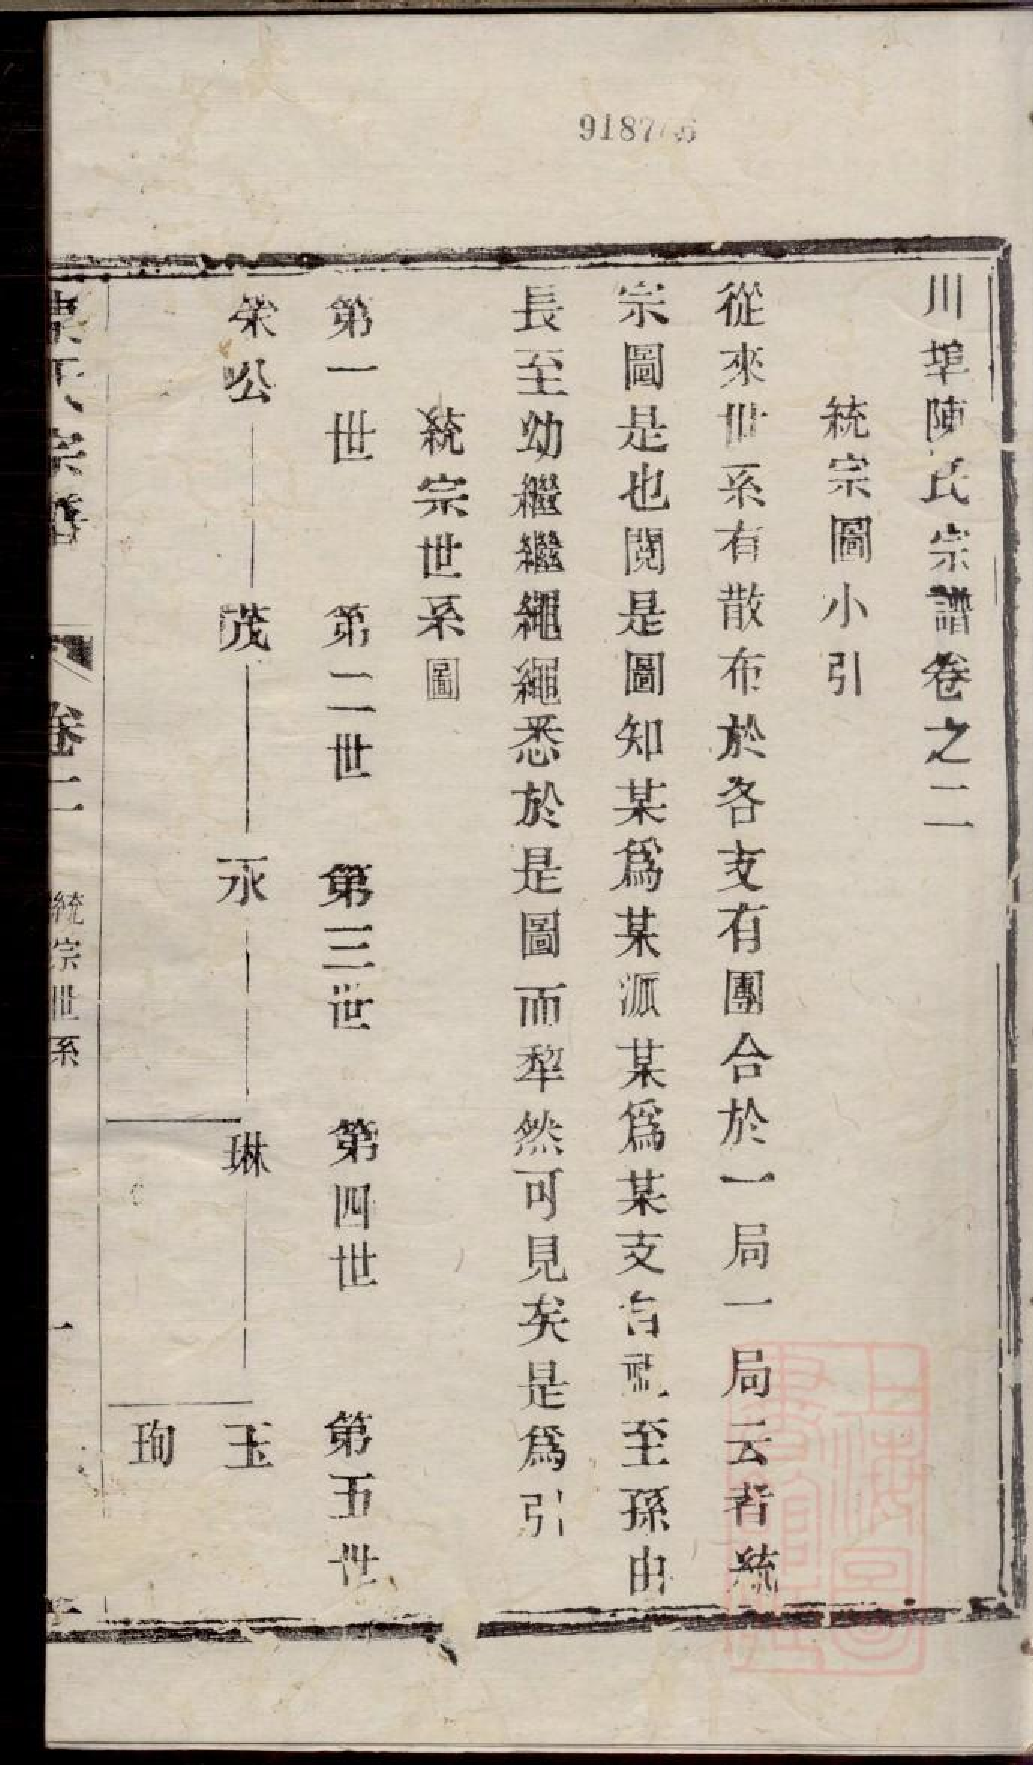 918706
川埠陳氏宗譜卷之二
統宗圖小引
從來世系有散布於各支有團合於一局一局云者統
宗圖是也閱是圖知某爲某派某爲某支自祖至孫由
長至幼繼繼繩繩悉於是圖而犂然可見矣是爲引
統宗世系圖
第一世 第二世 第三世 第四世 第五世
榮公 茂 永 琳 玉
珣
陳氏宗譜 卷二 統宗世系 一
上海圖書館藏